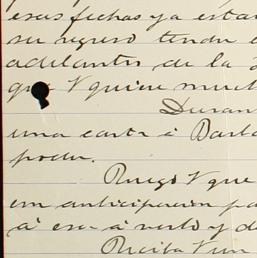 esas fechas ya esta
su regreso tendre
adelantos de la
que V quiere much
Duran
una carta á Barto
poder.
Ruego V que
em anticipacion pa
á esa á verlo y d
Reciba V un